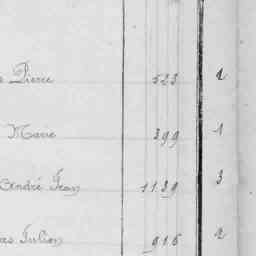 Pierre 523 1
Marie 399 1
André Jean 1139 3
Julien 916 2